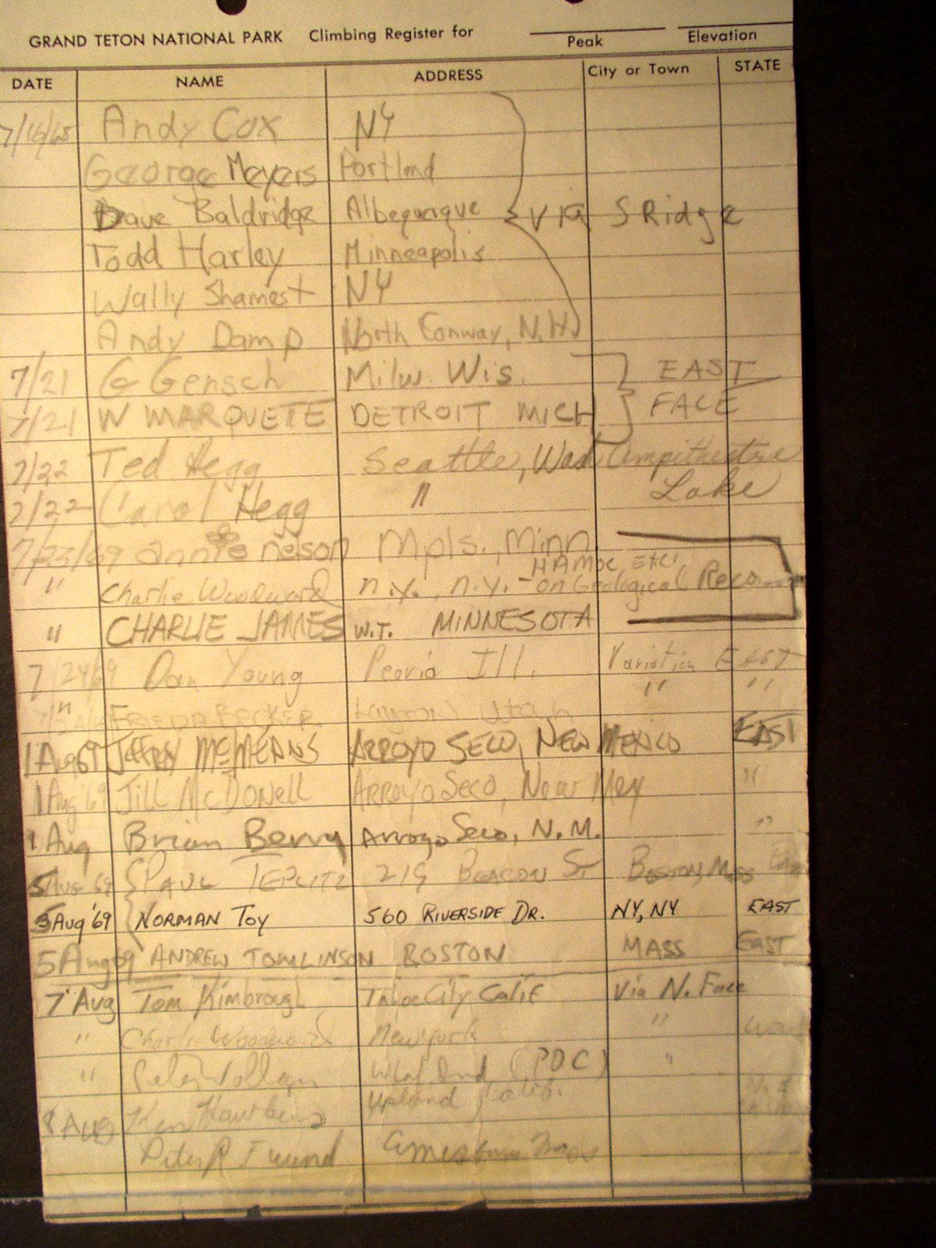 GRAND TETON NATIONAL PARK Climbing Register for
Peak Elevation
DATE NAME ADDRESS City or Town STATE
7/16/65 Andy Cox NY
George Meyers Portland
Dave Baldridge Albequerque via S Ridge
Todd Harley Minneapolis
Wally Shamest NY
Andy Damp North Conway, N.H.
7/21 G Gensch Milw. Wis. EAST
7/21 W MARQUETTE DETROIT MICH FACE
7/22 Ted Hegg Seattle, Wash Ampitheatre
7/22 Carol Hegg " Lake
7/23/69 annie nelson Mpls., Minn
HAMOC, ETC!
" Charlie Woodward n.y., n.y. - on Geological Recon
" CHARLIE JAMES W.T. MINNESOTA
7/24/69 Dan Young Peoria Ill. Variation EAST
" FRIEDA BECKER Layton Utah " "
1 Aug 69 JEFFRY ARROYO SECO, NEW MEXICO EAST
1 Aug '69 Jill McDonell ARROYO SECO, New Mex "
1 Aug Brian Berry Arroyo Seco, N.M. "
5 Aug '69 PAUL TEPLITZ 219 BEACON ST BOSTON, Mass East
5 Aug '69 NORMAN TOY 560 RIVERSIDE DR. NY, NY EAST
5 Aug 69 ANDREW TOMLINSON BOSTON MASS EAST
7 Aug Tom Kimbrough Tahoe City Calif Via N. Face
" Charlie Woodward New York "
" Peter (PDC) "
8 Aug Ken Hawkins Upland, Calif.
Peter R Mass